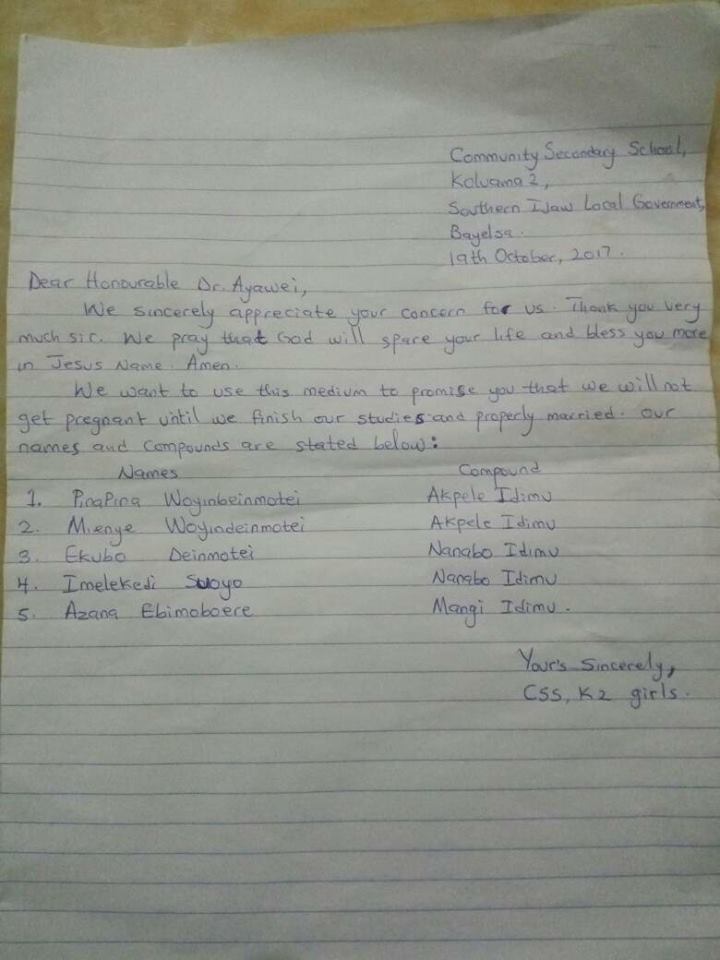 Community Secondary School,
Koluama 2,
Southern Ijaw Local Government,
Bayelsa.
19th October, 2017.
Dear Honourable Dr. Ayawei,
We sincerely appreciate your concern for us. Thank you very
much sir. We pray that God will spare your life and bless you more
in Jesus Name. Amen.
We want to use this medium to promise you that we will not
get pregnant until we finish our studies and properly married. Our
names and compounds are stated below:
Names Compound
1. PinaPina Woyinbeinmotei Akpele Idimu
2. Mienye Woyindeinmotei Akpele Idimu
3. Ekubo Deinmotei Nanabo Idimu
4. Imelekedi Suoyo Nanabo Idimu
5. Azana Ebimoboere Mangi Idimu.
Your's Sincerely,
CSS, K2 girls.